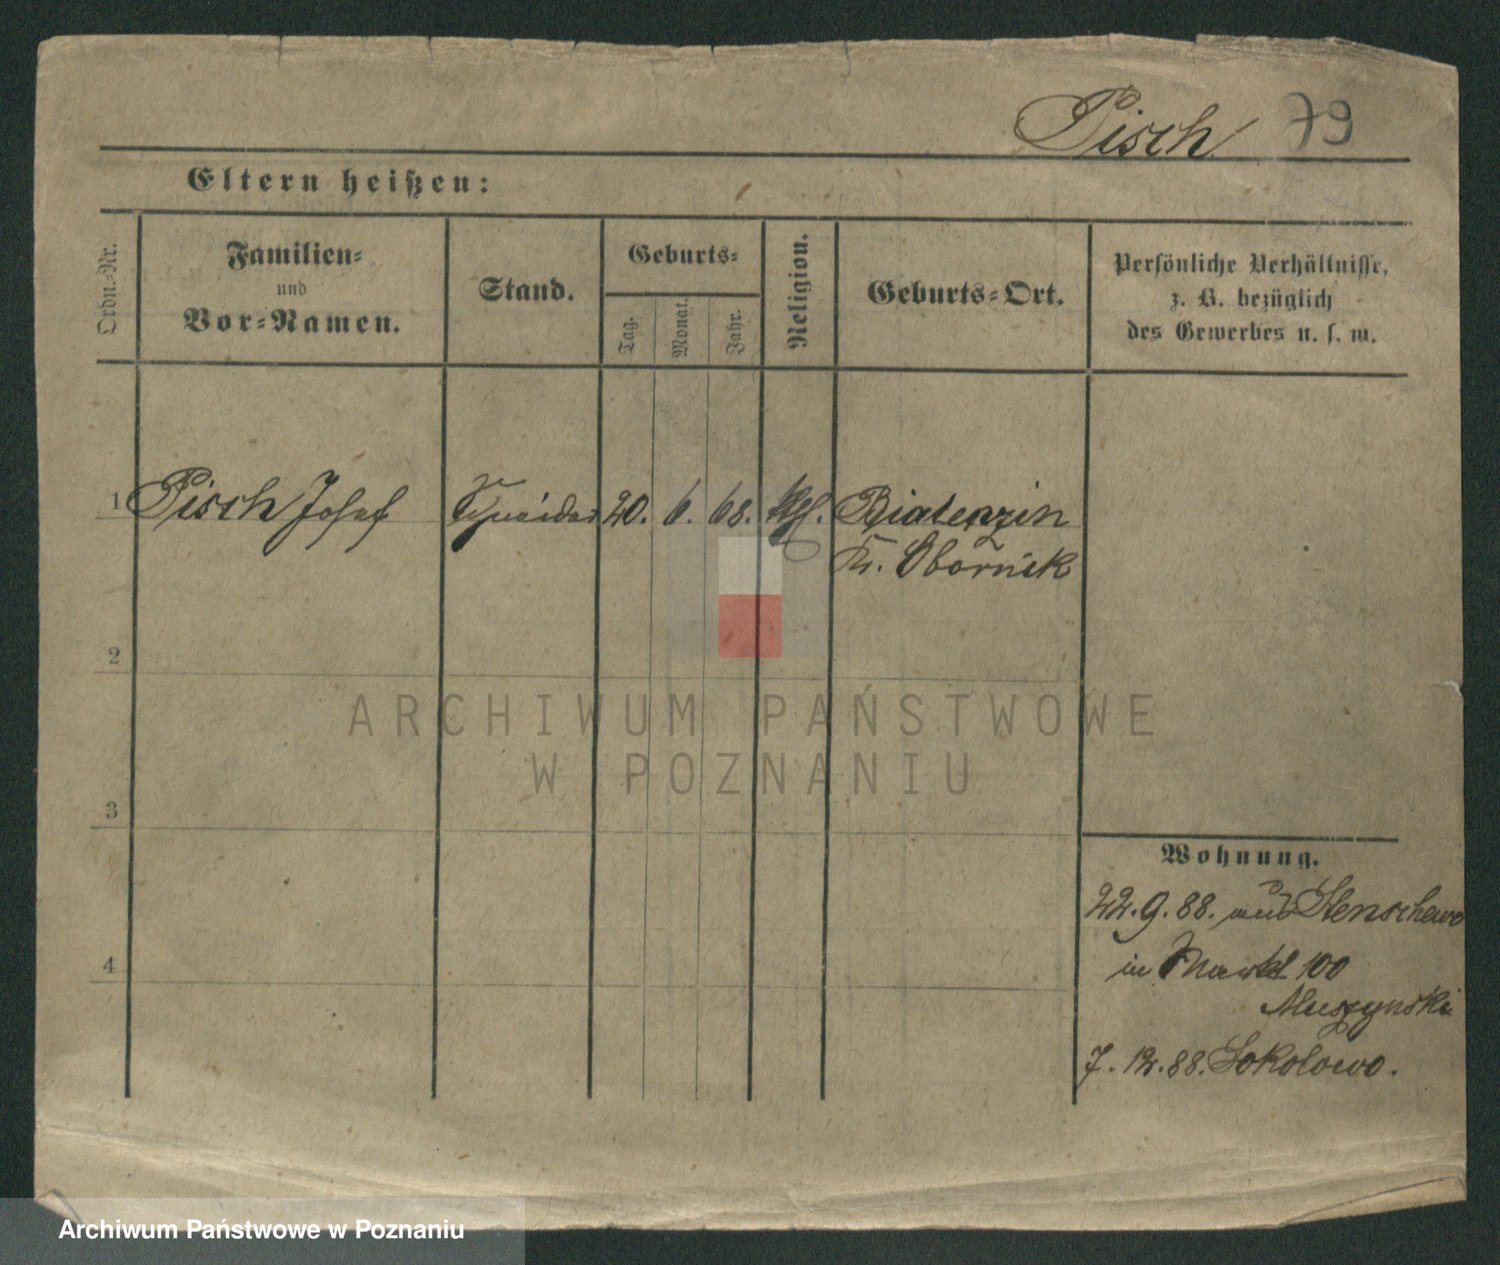 Pisch 79
Eltern heißen:
Ordn.-Nr.
Familien-
und
Vor-Namen.
Stand.
Geburts-
Tag.
Monat.
Jahr.
Religion.
Geburts-Ort.
Persönliche Verhältnisse,
z. B. bezüglich
des Gewerbes u. s. w.
1 Pisch Josef Schneider 20. 6. 68. kth. Bialenzin
Kr. Obornik
2
3
4
Wohnung.
22.9.88. aus Stenschewo
in Markt 100
Muszynski
7.12.88. Sokolowo.
ARCHIWUM PAŃSTWOWE
W POZNANIU
Archiwum Państwowe w Poznaniu